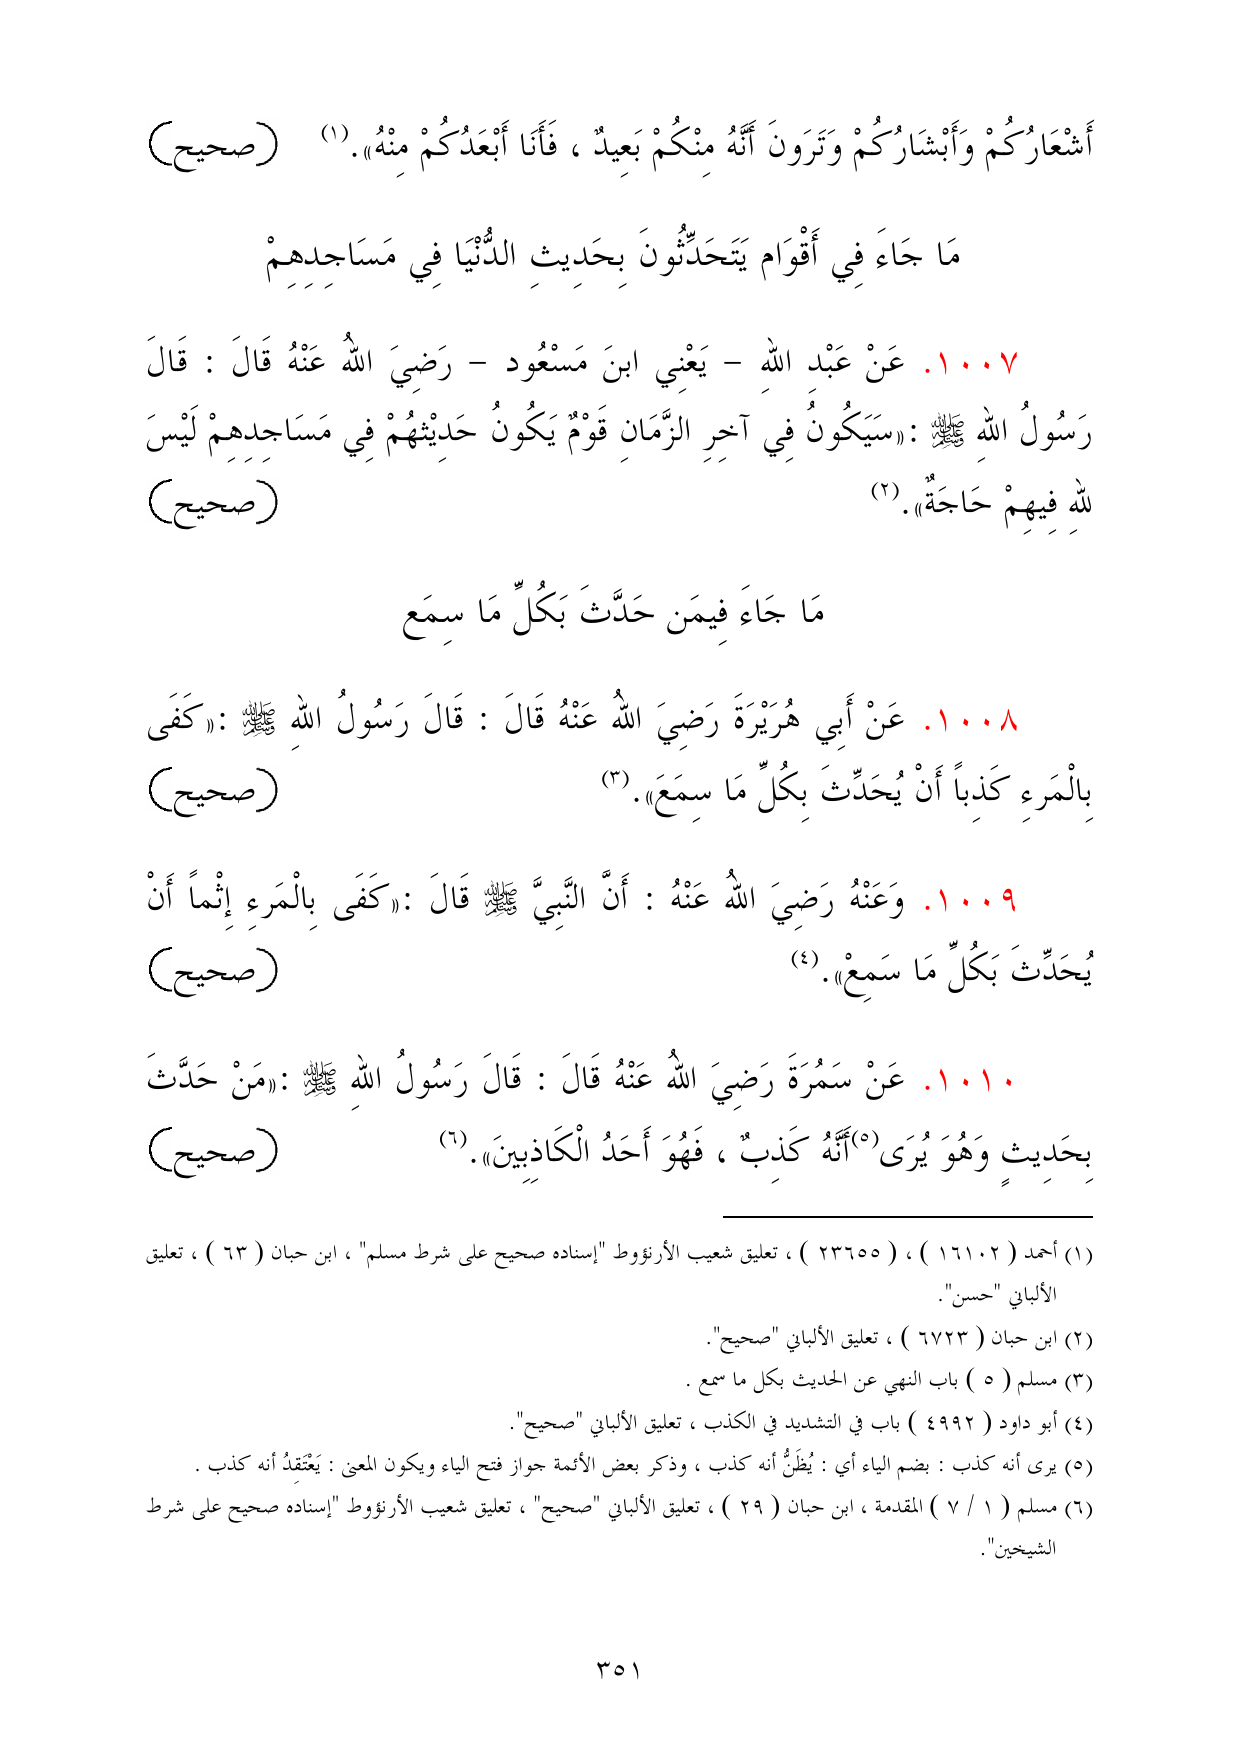 أَشْعَارُكُمْ وَأَبْشَارُكُمْ وَتَرَونَ أَنَّهُ مِنْكُمْ بَعِيدٌ ، فَأَنَا أَبْعَدُكُمْ مِنْهُ». (١) (صحيح)
مَا جَاءَ فِي أَقْوَام يَتَحَدِّثُونَ بِحَدِيثِ الدُّنْيَا فِي مَسَاجِدِهِمْ
١٠٠٧. عَنْ عَبْدِ اللهِ – يَعْنِي ابنَ مَسْعُود – رَضِيَ اللهُ عَنْهُ قَالَ : قَالَ
رَسُولُ اللهِ ﷺ :«سَيَكُونُ فِي آخِرِ الزَّمَانِ قَوْمٌ يَكُونُ حَدِيْثهُمْ فِي مَسَاجِدِهِمْ لَيْسَ
للهِ فِيهِمْ حَاجَةٌ». (٢) (صحيح)
مَا جَاءَ فِيمَن حَدَّثَ بَكُلِّ مَا سِمَع
١٠٠٨. عَنْ أَبِي هُرَيْرَةَ رَضِيَ اللهُ عَنْهُ قَالَ : قَالَ رَسُولُ اللهِ ﷺ :«كَفَى
بِالْمَرءِ كَذِباً أَنْ يُحَدِّثَ بِكُلِّ مَا سِمَعَ». (٣) (صحيح)
١٠٠٩. وَعَنْهُ رَضِيَ اللهُ عَنْهُ : أَنَّ النَّبِيَّ ﷺ قَالَ :«كَفَى بِالْمَرءِ إِثْماً أَنْ
يُحَدِّثَ بَكُلِّ مَا سَمِعْ». (٤) (صحيح)
١٠١٠. عَنْ سَمُرَةَ رَضِيَ اللهُ عَنْهُ قَالَ : قَالَ رَسُولُ اللهِ ﷺ :«مَنْ حَدَّثَ
بِحَدِيثٍ وَهُوَ يُرَى(٥)أَنَّهُ كَذِبٌ ، فَهُوَ أَحَدُ الْكَاذِبِينَ». (٦) (صحيح)
(١) أحمد ( ١٦١٠٢ ) ، ( ٢٣٦٥٥ ) ، تعليق شعيب الأرنؤوط "إسناده صحيح على شرط مسلم" ، ابن حبان ( ٦٣ ) ، تعليق
الألباني "حسن".
(٢) ابن حبان ( ٦٧٢٣ ) ، تعليق الألباني "صحيح".
(٣) مسلم ( ٥ ) باب النهي عن الحديث بكل ما سمع .
(٤) أبو داود ( ٤٩٩٢ ) باب في التشديد في الكذب ، تعليق الألباني "صحيح".
(٥) يرى أنه كذب : بضم الياء أي : يُظَنُّ أنه كذب ، وذكر بعض الأئمة جواز فتح الياء ويكون المعنى : يَعْتَقِدُ أنه كذب .
(٦) مسلم ( ١ / ٧ ) المقدمة ، ابن حبان ( ٢٩ ) ، تعليق الألباني "صحيح" ، تعليق شعيب الأرنؤوط "إسناده صحيح على شرط
الشيخين".
٣٥١